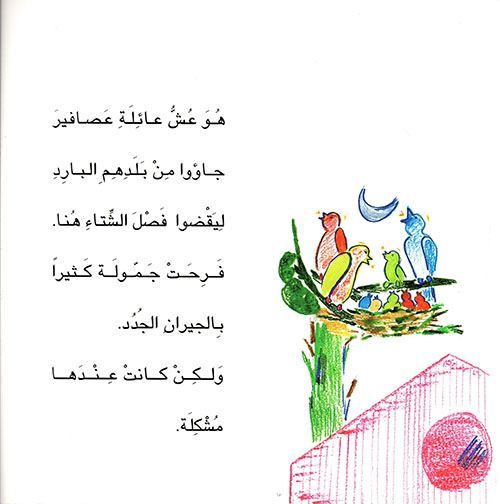 هُوَ عُشُّ عائِلَةِ عَصافيرَ
جاؤوا مِنْ بَلَدِهِمِ البارِدِ
لِيَقْضوا فَصْلَ الشِّتاءِ هُنا.
فَرِحَتْ جَمّولَة كَثيراً
بِالجيرانِ الجُدُد.
وَلـكِـنْ كـانَتْ عِنْـدَهـا
مُشْكِلَة.